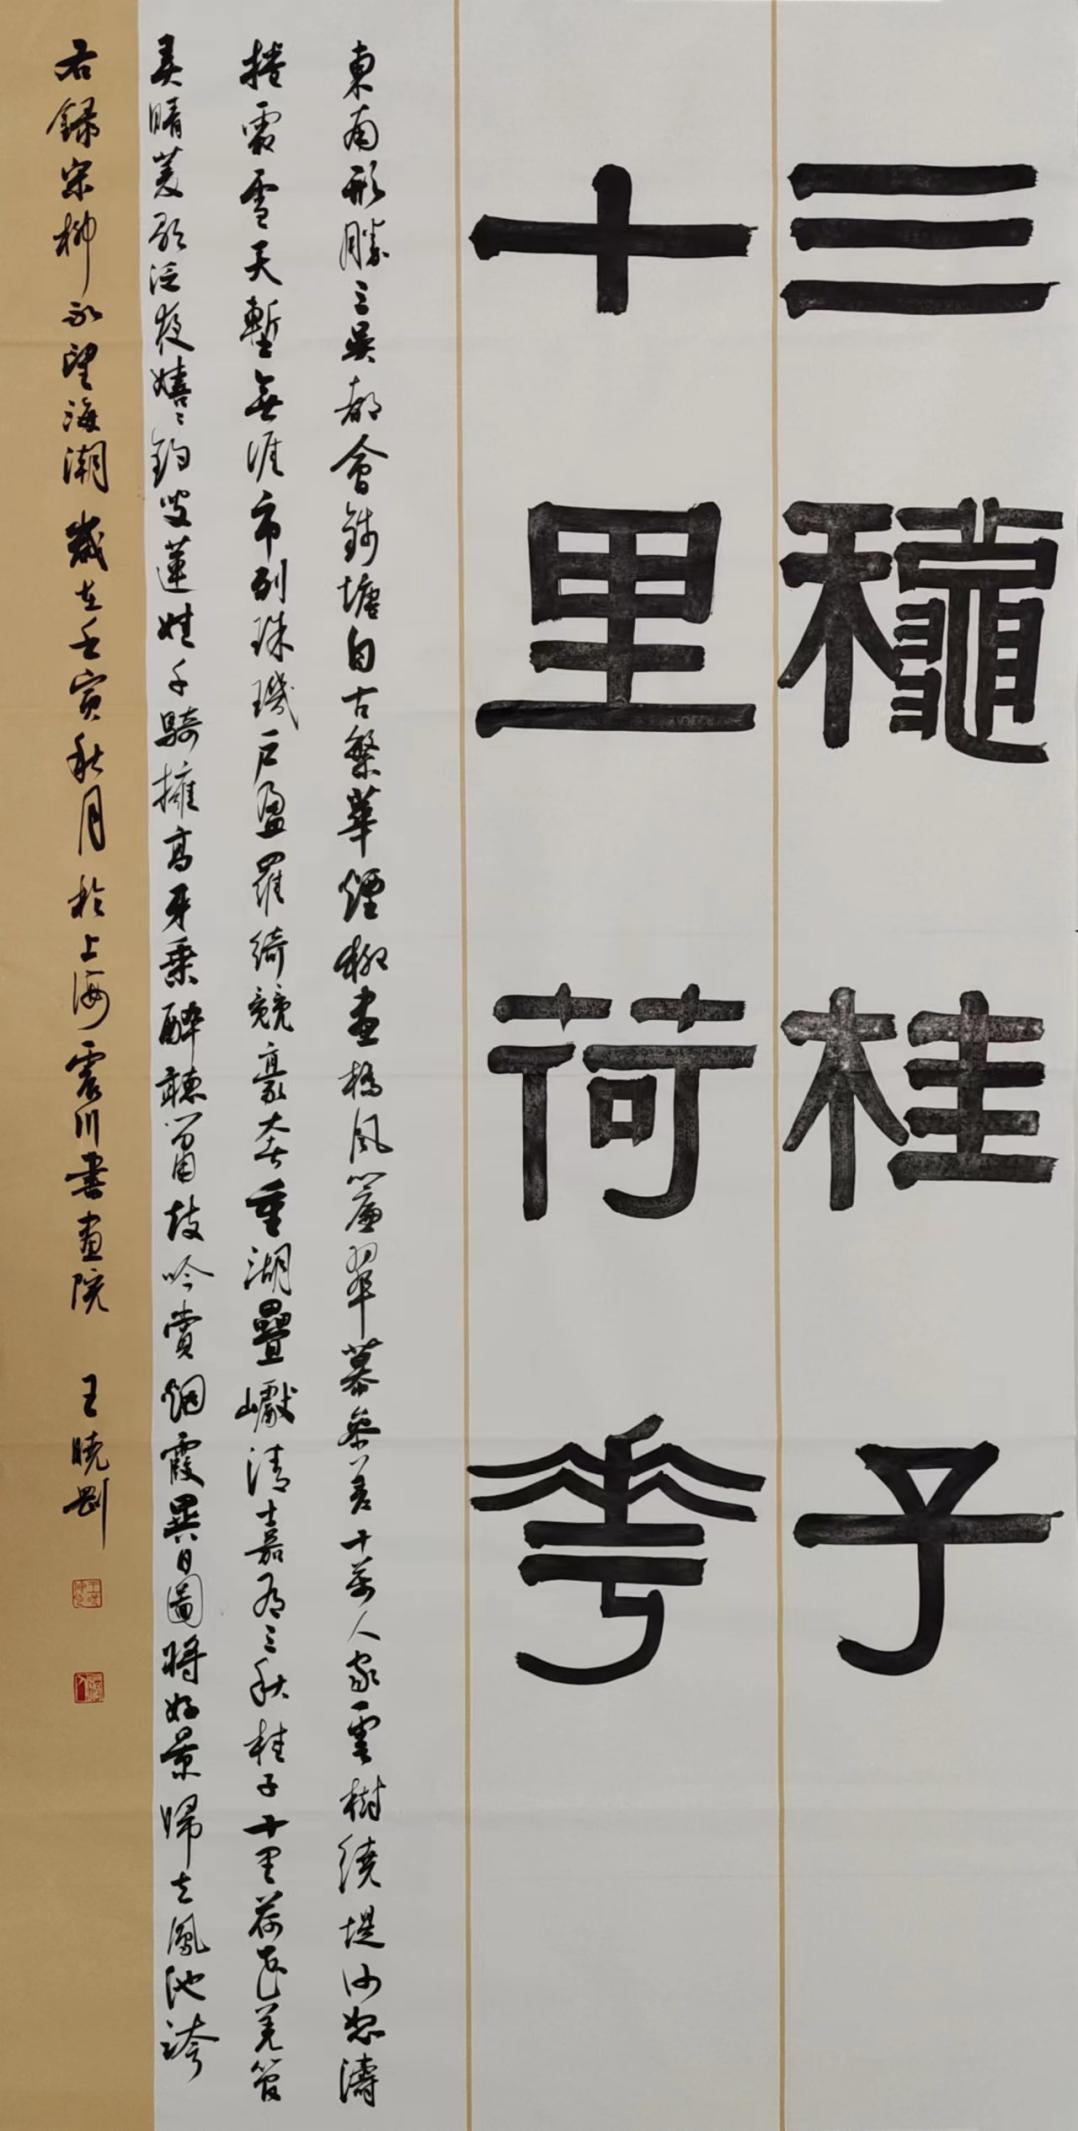 三穐桂子
十里荷華
東南形勝三吳都會錢塘自古繁華煙柳畫橋風簾翠幕參差十萬人家雲樹繞堤沙怒濤
捲霜雪天塹無涯市列珠璣戶盈羅綺競豪奢重湖疊巘清嘉有三秋桂子十里荷花羌管
弄晴菱歌泛夜嬉〻釣叟蓮娃千騎擁高牙乘醉聽簫鼓吟賞烟霞異日圖將好景歸去鳳池誇
右錄宋柳永望海潮 歲在壬寅秋月於上海震川書畫院 王曉剛